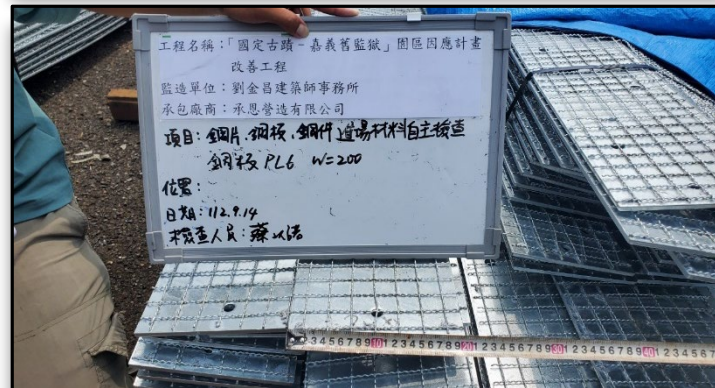 工程名稱：「國定古蹟－嘉義舊監獄」園區因應計畫
改善工程
監造單位：劉金昌建築師事務所
承包廠商：承恩營造有限公司
項目：鋼片、鋼板、鋼件進場材料自主檢查
鋼板 PL6 W=200
位置：
日期：112.9.14
檢查人員：蔡
1 2 3 4 5 6 7 8 9 10 1 2 3 4 5 6 7 8 9 20 1 2 3 4 5 6 7 8 9 30 1 2 3 4 5 6 7 8 9 40 1 2 3 4 5 6 7